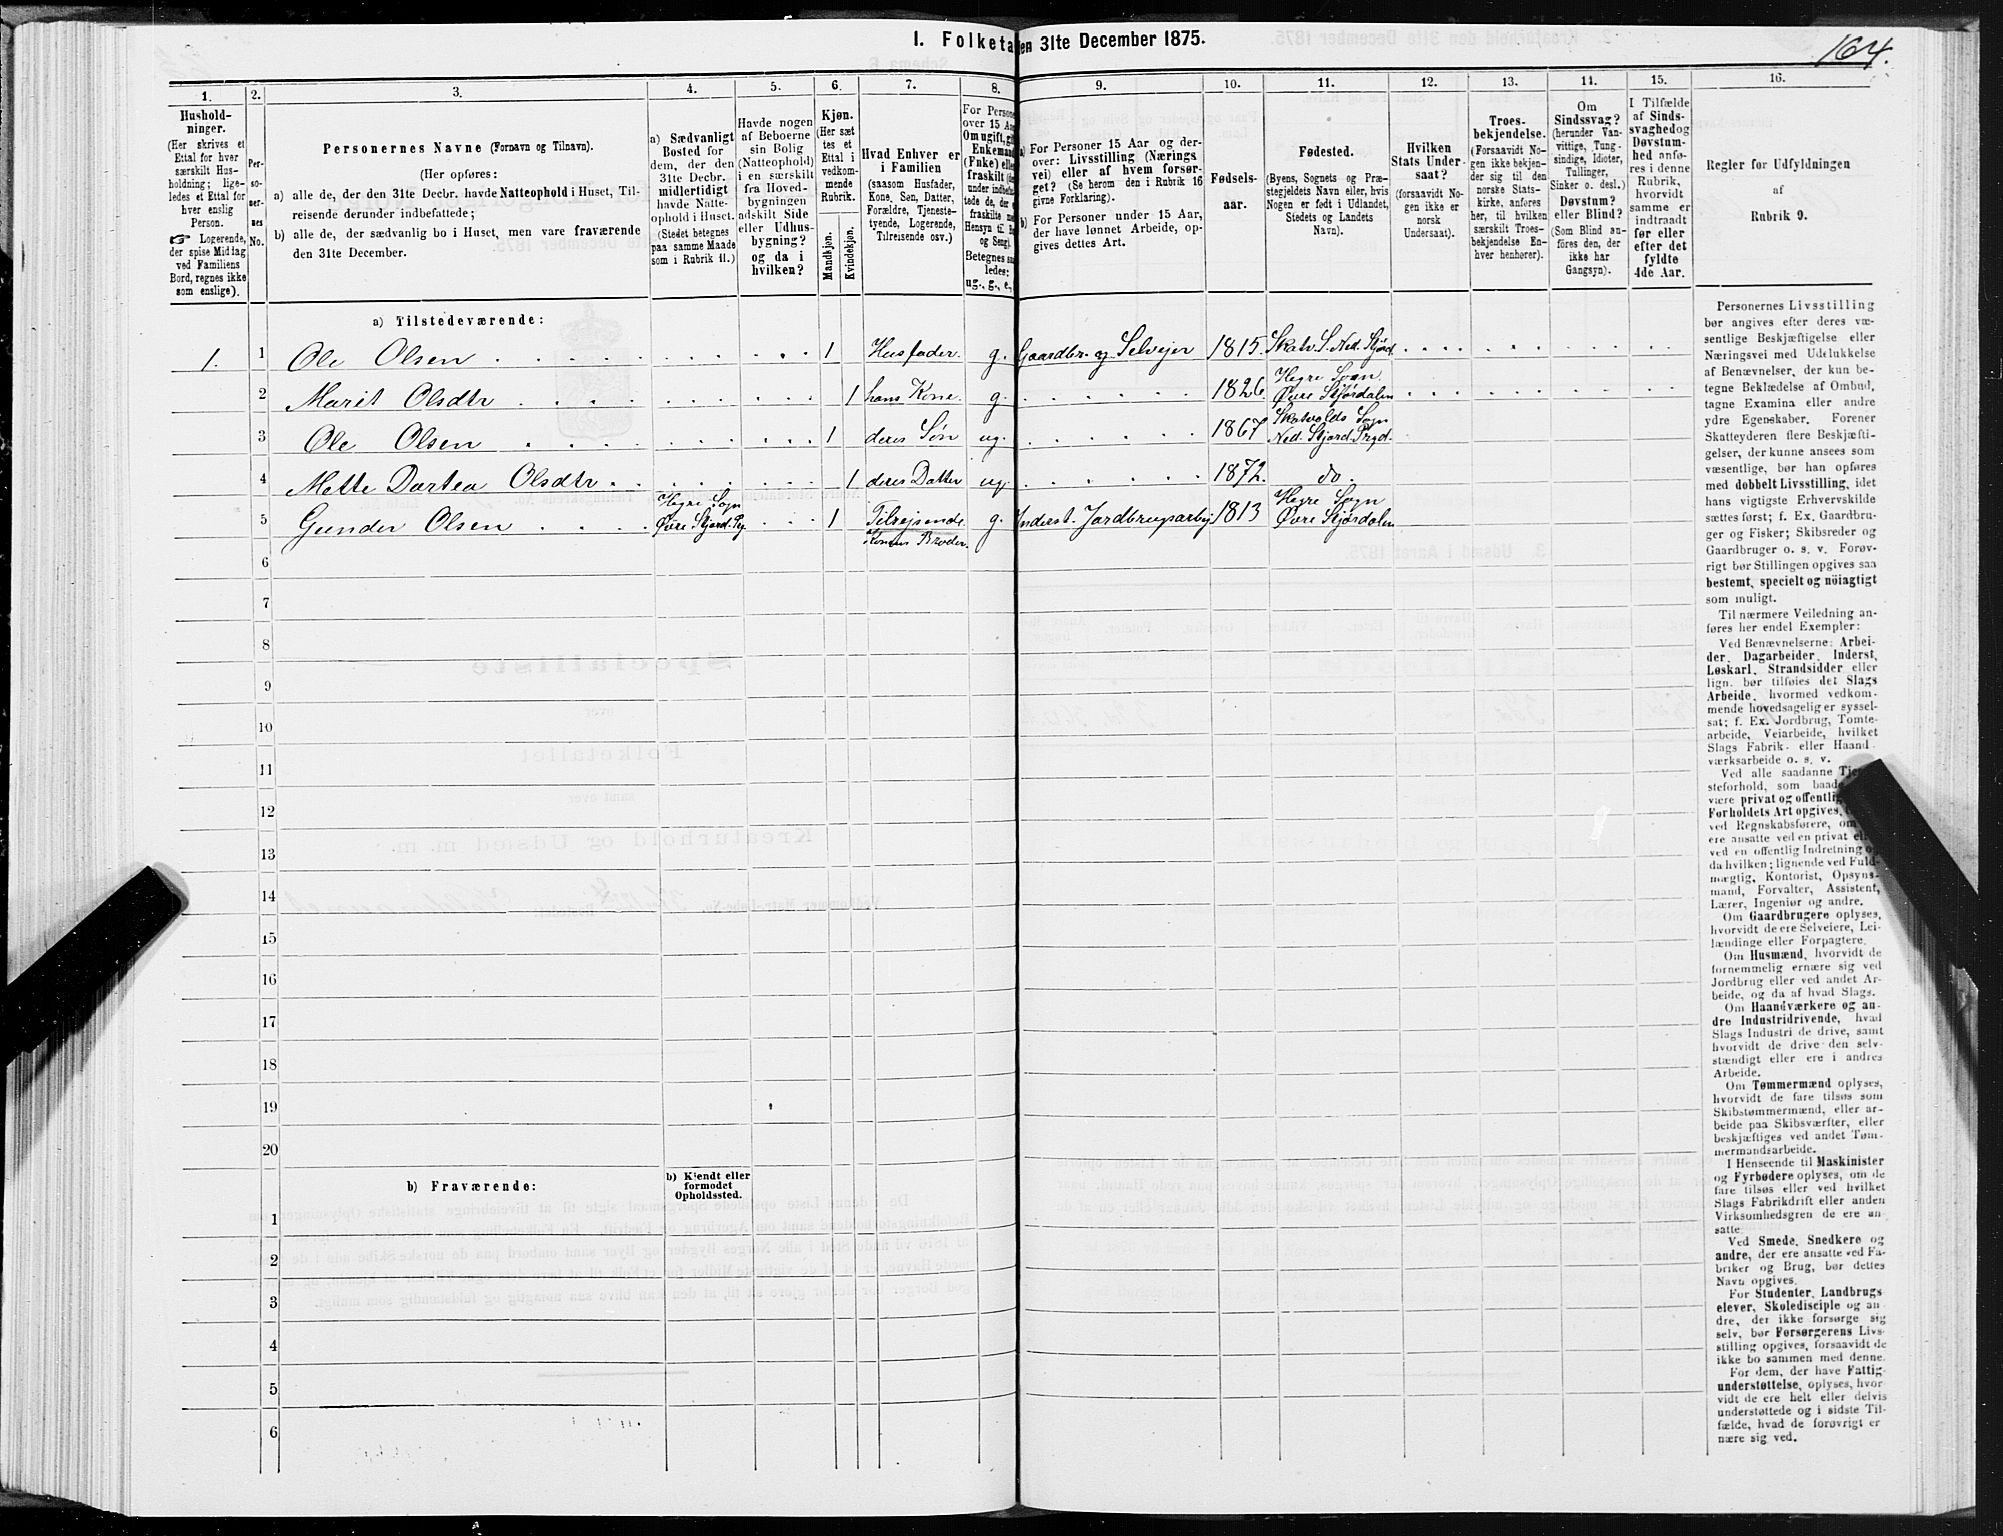 164.
I. Folketa en 31te December 1875.
1. 2. 3. 4. 5. 6. 7. 8. 9. 10. 11. 12. 13. 14. 15. 16.
Hushold-
ninger.
(Her skrives et
Ettal for hver
særskilt Hus-
holdning; lige-
ledes et Ettal for
hver enslig
Person.
☞ Logerende,
der spise Middag
ved Familiens
Bord, regnes ikke
som enslige).
Per-
so-
ner-
nes
No.
Personernes Navne (Fornavn og Tilnavn).
(Her opføres:
a) alle de, der den 31te Decbr. havde Natteophold i Huset, Til-
reisende derunder indbefattede;
b) alle de, der sædvanlig bo i Huset, men vare fraværende
den 31te December.
a) Sædvanligt
Bosted for
dem, der den
31te Decbr.
midlertidigt
havde Natte-
ophold i Huset.
(Stedet betegnes
paa samme Maade
som i Rubrik 11.)
Havde nogen
af Beboerne
sin Bolig
(Natteophold)
i en særskilt
fra Hoved-
bygningen
adskilt Side
eller Udhus-
bygning?
og da i
hvilken?
Kjøn.
(Her sæt
tes et
Ettal i
vedkom-
mende
Rubrik.
Mandkjøn.
Kvindekjøn.
Hvad Enhver er
i Familien
(saasom Husfader,
Kone, Søn, Datter,
Forældre, Tjeneste-
tyende, Logerende,
Tilreisende osv.)
For Persone
over 15 Aa
Om ugift, gif
Enkemand
(Enke) elle
fraskilt
under indbefat-
tede de, der
fraskilte
Hensyn til B
og Seng).
Betegnes saa
ledes:
ug., g., e.,
a) For Personer 15 Aar og der-
over: Livsstilling (Nærings
vei) eller af hvem forsør-
get? (Se herom den i Rubrik 16
givne Forklaring).
b) For Personer under 15 Aar,
der have lønnet Arbeide, op-
gives dettes Art.
Fødsels-
aar.
Fødested.
(Byens, Sognets og Præ-
stegjeldets Navn eller, hvis
Nogen er født i Udlandet,
Stedets og Landets
Navn).
Hvilken
Stats Under-
saat?
(forsaavidt No-
gen ikke er
norsk
Undersaat).
Troes-
bekjendelse.
(Forsaavidt No-
gen ikke bekjen-
der sig til den
norske Stats-
kirke, anføres
her, til hvilken
særskilt Troes-
bekjendelse En-
hver henhører).
Om
Sindssvag?
(herunder Van-
vittige, Tung-
sindige, Idioter,
Tullinger,
Sinker o. desl.)
Døvstum?
eller Blind?
(Som Blind an-
føres den, der
ikke har
Gangsyn).
I Tilfælde
af Sinds-
svaghed og
Døvstum-
hed anfø-
res i denne
Rubrik,
hvorvidt
samme er
indtraadt
før eller
efter det
fyldte
4de Aar.
Regler for Udfyldningen
af
Rubrik 9.
a) Tilstedeværende:
1. 1 Ole Olsen 1 Husfader. g. Gaardbr. og Selveier 1815. Skatv. S. Ned. Stjørd.
2 Marit Olsdtr 1 hans Kone. g. 1826. Hegre Sogn Øvre Stjørdalen
3 Ole Olsen 1 deres Søn ug. 1867 Skatvolds Sogn Ned. Stjord. Prgd.
4 Mette Dortea Olsdtr. 1 deres Datter ug. 1872. do.
5 Gunder Olsen Hegre Sogn Øvre Stjord. Pg 1 Tilreisende Konens Broder. g. Inderst. Jordbrugsarbej 1813 Hegre Sogn Øvre Stjørdalen
6
7
8
9
10
11
12
13
14
15
16
17
18
19
20
b) Fraværende:
b) Kjendt eller
formodet
Opholdssted.
1
2
3
4
5
6
Personernes Livsstilling
bør angives efter deres væ-
sentlige Beskjæftigelse eller
Næringsvei med Udelukkelse
af Benævnelser, der kun be-
tegne Beklædelse af Ombud,
tagne Examina eller andre
ydre Egenskaber. Forener
Skatteyderen flere Beskjæfti-
gelser, der kunne ansees som
væsentlige, bør han opføres
med dobbelt Livsstilling, idet
hans vigtigste Erhvervskilde
sættes først; f. Ex. Gaardbru-
ger og Fisker; Skibsreder og
Gaardbruger o. s. v. Forøv-
rigt bør Stillingen opgives saa
bestemt, specielt og nöiagtigt
som muligt.
Til nærmere Veiledning an-
føres her endel Exempler:
Ved Benævnelserne: Arbei-
der, Dagarbeider, Inderst,
Løskarl, Strandsidder eller
lign. bør tilføies det Slags
Arbeide, hvormed vedkom-
mende hovedsagelig er syssel-
sat; f. Ex. Jordbrug, Tomte-
arbeide, Veiarbeide, hvilket
Slags Fabrik- eller Haand-
værksarbeide o. s. v.
Ved alle saadanne Tje
steforhold, som baade
være privat og offentlig
Forholdets Art opgives,
ved Regnskabsførere, om
ere ansatte ved en privat el
ved en offentlig Indretning o
da hvilken; lignende ved Fuld-
mægtig, Kontorist, Opsyns-
mand, Forvalter, Assistent,
Lærer, Ingeniør og andre.
Om Gaardbrugere oplyses,
hvorvidt de ere Selveiere, Lei-
lændinge eller Forpagtere.
Om Husmænd, hvorvidt de
fornemmelig ernære sig ved
Jordbrug eller ved andet Ar-
beide, og da af hvad Slags.
Om Haandværkere og an-
dre Industridrivende, hvad
Slags Industri de drive, samt
hvorvidt de drive den selv-
stændigt eller ere i andres
Arbeide.
Om Tømmermænd oplyses,
hvorvidt de fare tilsøs som
Skibstømmermænd, eller ar-
beide paa Skibsværfter, eller
beskjæftiges ved andet Tøm-
mermandsarbeide.
I Henseende til Maskinister
og Fyrbødere oplyses, om de
fare tilsøs eller ved hvilket
Slags Fabrikdrift eller anden
Virksomhedsgren de ere an-
satte.
Ved Smede, Snedkere og
andre, der ere ansatte ved Fa-
briker og Brug, bør dettes
Navn opgives.
For Studenter, Landbrugs-
elever, Skoledisciple og an-
dre, der ikke forsørge sig
selv, bør Forsørgerens Livs-
stilling opgives, forsaavidt de
ikke bo sammen med denne.
For dem, der have Fattig-
understøttelse, oplyses, hvor-
vidt de ere helt eller delvis
understøttede og i sidste Til-
fælde, hvad de forøvrigt er
nære sig ved.